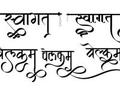 स्वागत् स्वागत्
वेलकम् वेलकम् वेलकम्